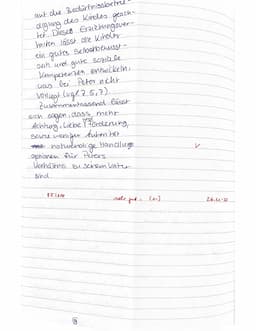 auf die Bedürfnisbefrie-
digung des Kindes geach-
tet. Dieses Erziehungsver-
halten lässt die Kinder
ein gutes Selbstbewusst-
sein und gute soziale
Kompetenzen entwickeln,
was bei Peter nicht
vorliegt (vgl. Z. 5, 7).
Zusammenfassend lässt
sich sagen, dass mehr
Achtung, Liebe, Förderung,
sowie weniger
notwendige Handlungs
optionen für Peters
Verhältnis zu seinem Vater
sind.
sehr gut -